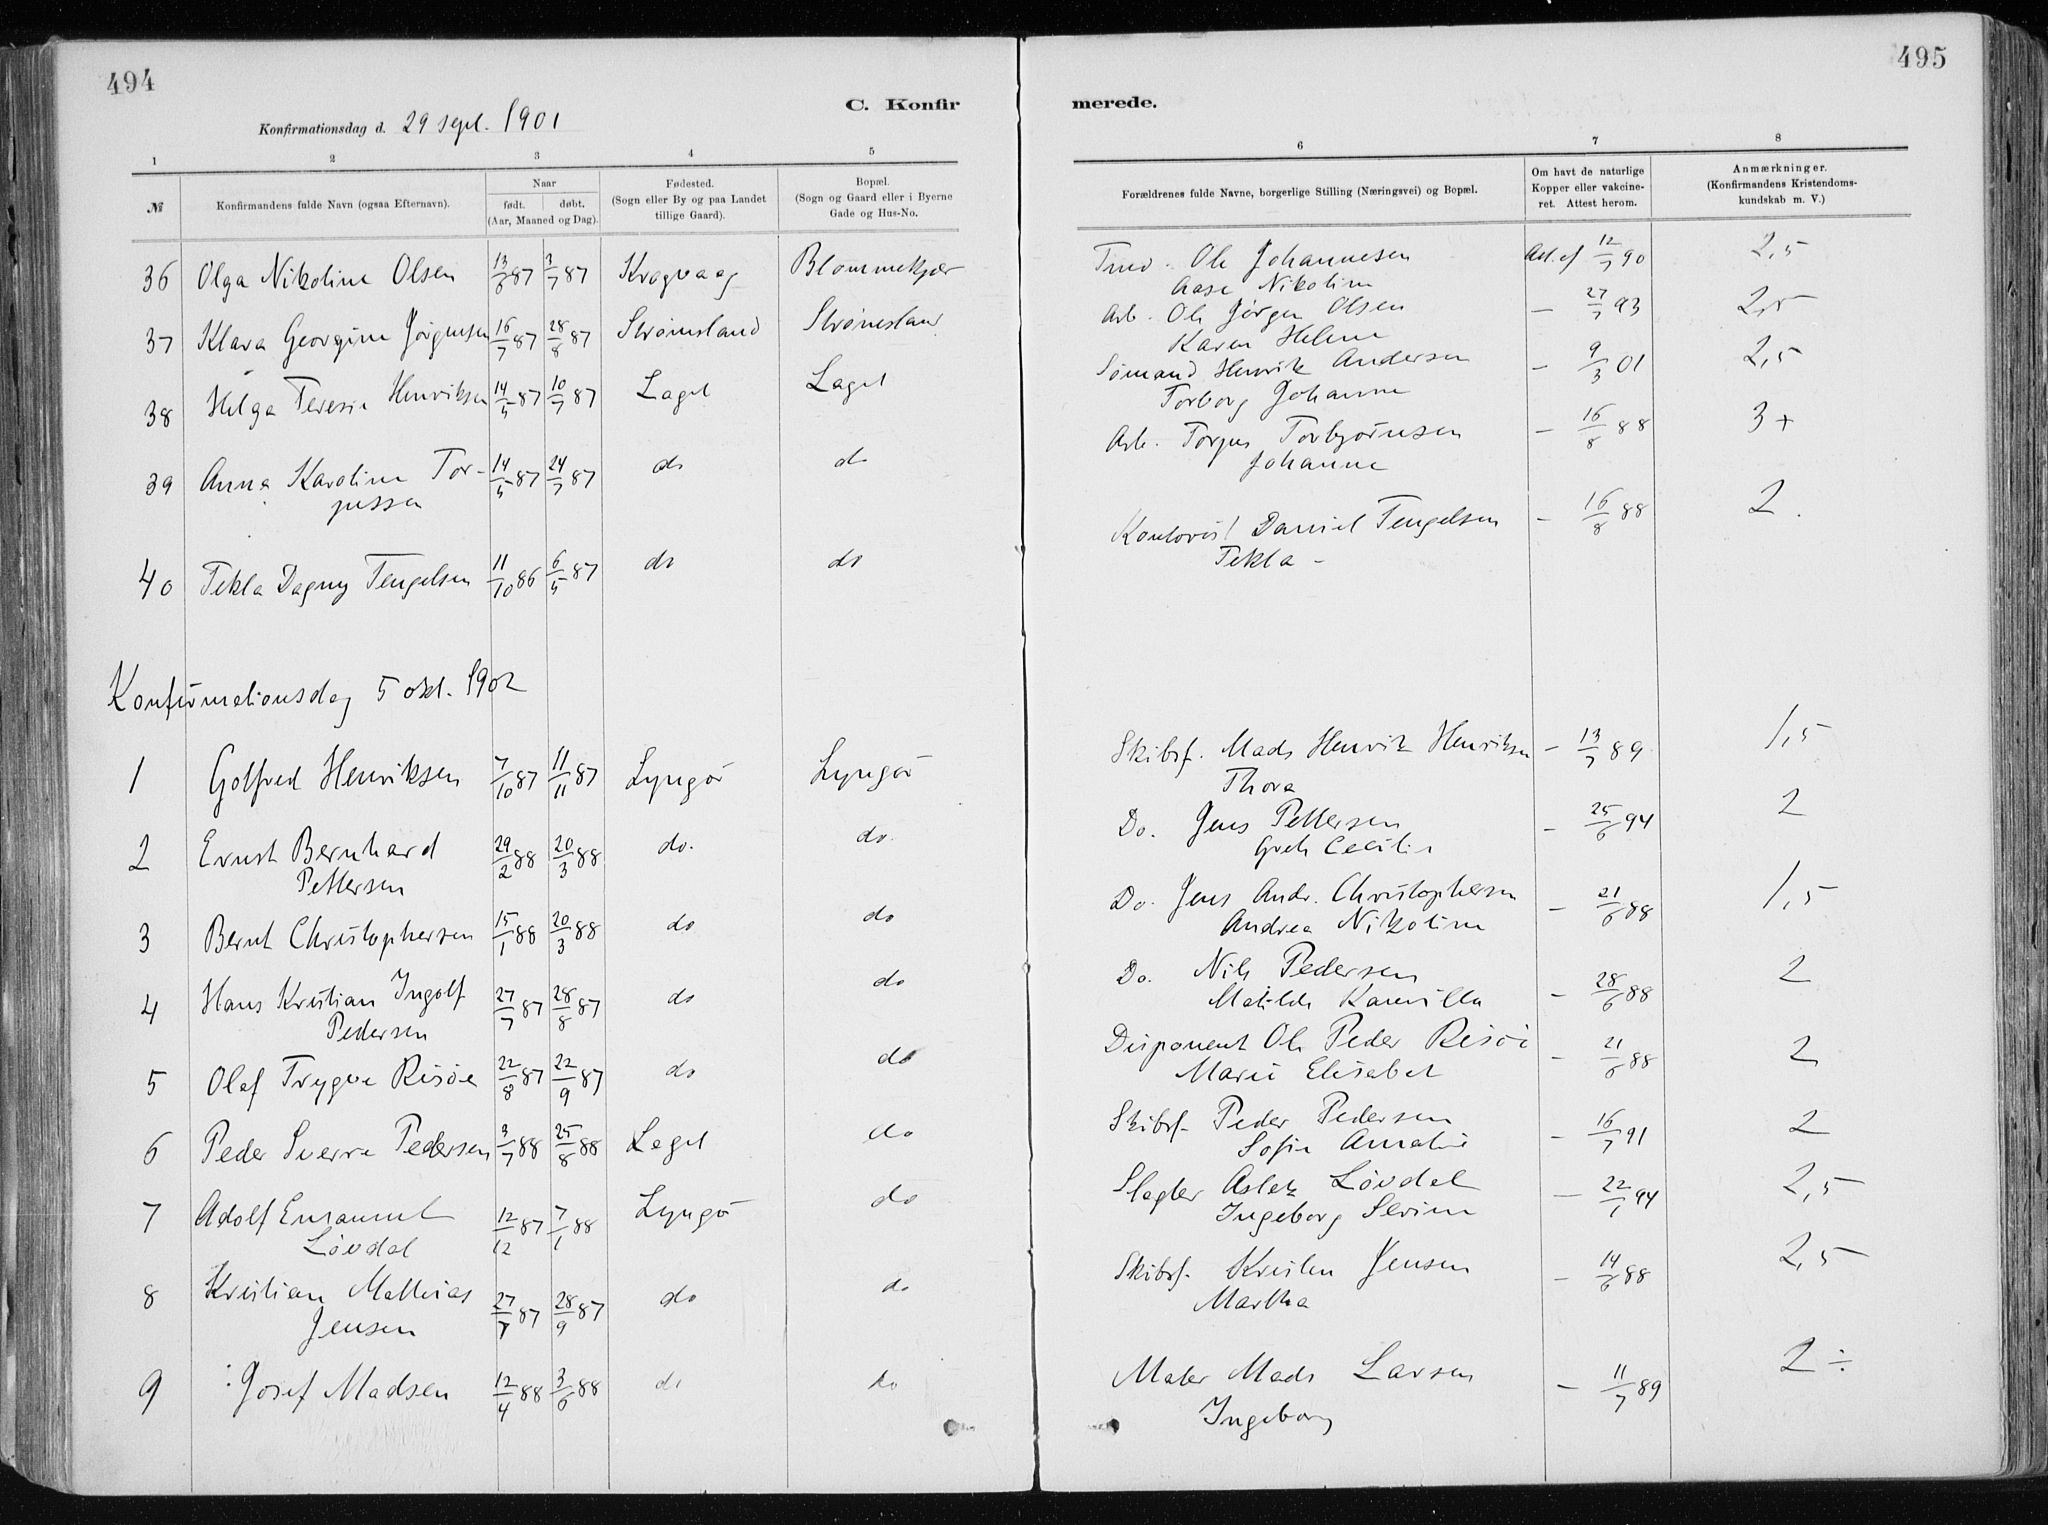 494
495
C. Konfir
merede.
Konfirmationsdag d. 29 sept. 1901
1 2 3 4 5 6 7 8
№
Konfirmandens fulde Navn (ogsaa Efternavn).
Naar
født. døbt.
(Aar, Maaned og Dag).
Fødested.
(Sogn eller By og paa Landet
tillige Gaard).
Bopæl.
(Sogn og Gaard eller i Byerne
Gade og Hus-No.
Forældrenes fulde Navne, borgerlige Stilling (Næringsvei) og Bopæl.
Om havt de naturlige
Kopper eller vakcine-
ret. Attest herom.
Anmærkninger.
(Konfirmandens Kristendoms-
kundskab m. V.)
36 Olga Nikoline Olsen 13/6 87 3/7 87 Krogvaag Blommekjær Ole Johannesen 12/7 90 2,5
Aase Nikoline
37 Klara Georgine Jørgensen 16/7 87 28/8 87 Strømsland Strømsland Arb. Ole Jørgen Olsen – 27/7 93 2,5
Karen Helene
38 Helga Teresie Henriksen 14/5 87 10/7 87 Laget Laget Sømand Henrik Andersen – 9/3 01 2,5
Torborg Johanne
39 Anna Karoline Tor- 14/5 87 24/7 87 do do Arb. Torjus Torbjørnsen – 16/8 88 3+
jussen Johanne
40 Tekla Dagny Tengelsen 11/10 86 6/5 87 do do Daniel Tengelsen – 16/8 88 2.
Tekla –
Konfirmationsdag 5 okt. 1902
1 Golfred Henriksen 7/10 87 11/11 87 Lyngør Lyngør Skibsf. Mads Henrik Henriksen – 13/7 89 1,5
Thora
2 Ernst Bernhard 29/2 88 20/3 88 do. do. Do. Jens Pettersen – 25/6 94 2
Pettersen Greth Cecilie
3 Bernt Christophersen 15/1 88 20/3 88 do do Do. Jens Andr. Christophersen – 21/6 88 1,5
Andrea Nikoline
4 Hans Kristian Ingolf 27/7 87 28/8 87 do do Do. Nils Pedersen – 28/6 88 2
Pedersen Matilde Kamilla
5 Olaf Trygve Risøe 22/8 87 22/9 87 do do Disponent Ole Peder Risøe – 21/6 88 2
Marie Elisabet
6 Peder Sverre Pedersen 3/7 88 25/8 88 Laget do Skibsf. Peder Pedersen – 16/7 91 2
Sofie Amalie
7 Adolf Emanuel 12/12 87 7/1 88 Lyngør do Slagter Aslak Løvdal – 22/1 94 2,5
Løvdal Ingeborg Serine
8 Kristian Mathias 27/7 87 28/9 87 do do Skibsf. Kristen Jensen – 14/6 88 2,5
Jensen Martha
9 Josef Madsen 12/4 88 3/6 88 do do Maler Mads Larsen – 11/7 89 2 ÷
Ingeborg